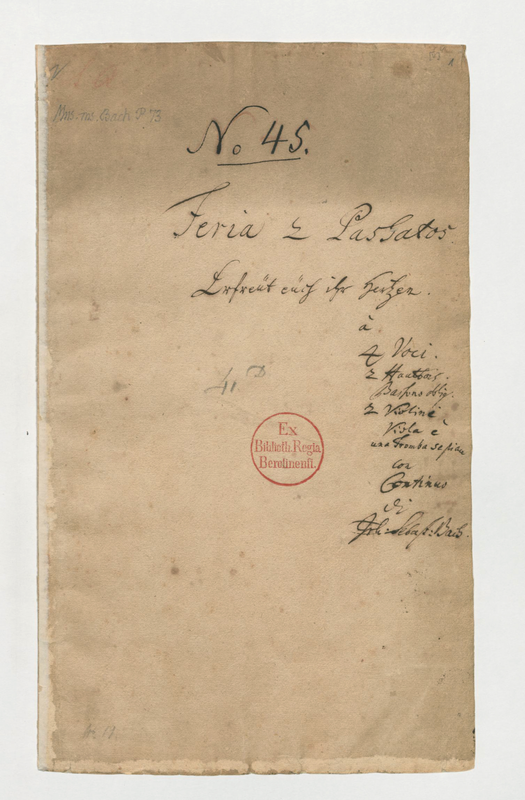 Mus. ms. Bach P 73
No 45.
Feria 2 Paschatos
Erfreüt eüch ihr Hertzen.
à
4 Voci.
2 Hautbois.
Bassono oblig.
2 Violini
Viola è
una Tromba se piace
con
Continuo
di
Joh: Sebast: Bach.
41
Ex
Biblioth. Regia
Berolinensi.